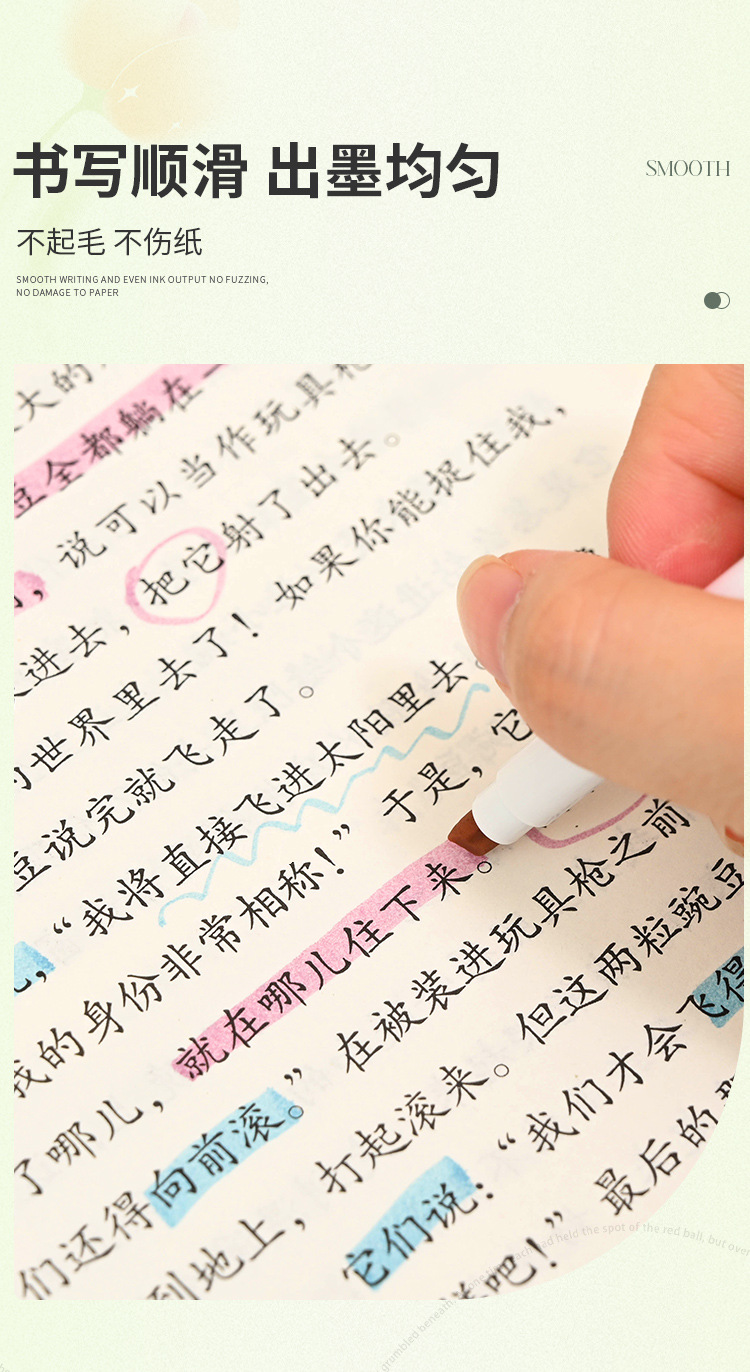 书写顺滑 出墨均匀
SMOOTH
不起毛 不伤纸
SMOOTH WRITING AND EVEN INK OUTPUT NO FUZZING,
NO DAMAGE TO PAPER
大的
豆全都躺在一
说可以当作玩具枪
把它射了出去。
进去,
如果你能捉住我,
世界里去了!
豆说完就飞走了。
“我将直接飞进太阳里去。
我的身份非常相称!” 于是,它
了哪儿,就在哪儿住下来。
们还得向前滚。” 在被装进玩具枪之前
到地上,打起滚来。但这两粒豌豆
它们说:“我们才会飞得
吧!” 最后的那